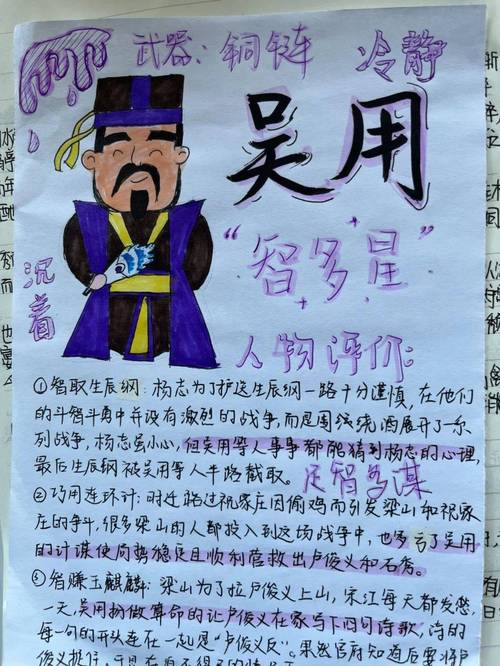 武器：铜链 冷静
吴用
"智多星"
沉着
人物评价：
①智取生辰纲：杨志为了护送生辰纲一路十分谨慎，在他们
的斗智斗勇中并没有激烈的战争，而是围绕酒展开了一系
列战争，杨志虽小心，但吴用等人事事都能猜到杨志的心理，
最后生辰纲被吴用等人半路截取。足智多谋
②巧用连环计：时迁路过祝家庄因偷鸡而引发梁山和祝家
庄的争斗，很多梁山的人都投入到这场战争中，也多亏了吴用
的计谋使局势稳定且顺利营救出卢俊义和石秀。
③智赚玉麒麟：梁山为了拉卢俊义上山，宋江每天都发愁
一天，吴用扮做算命的让卢俊义在家写下四句诗歌，诗的
每一句的开头连在一起是"卢俊义反"。果然官府知道后要将卢
俊义抓行，于是在